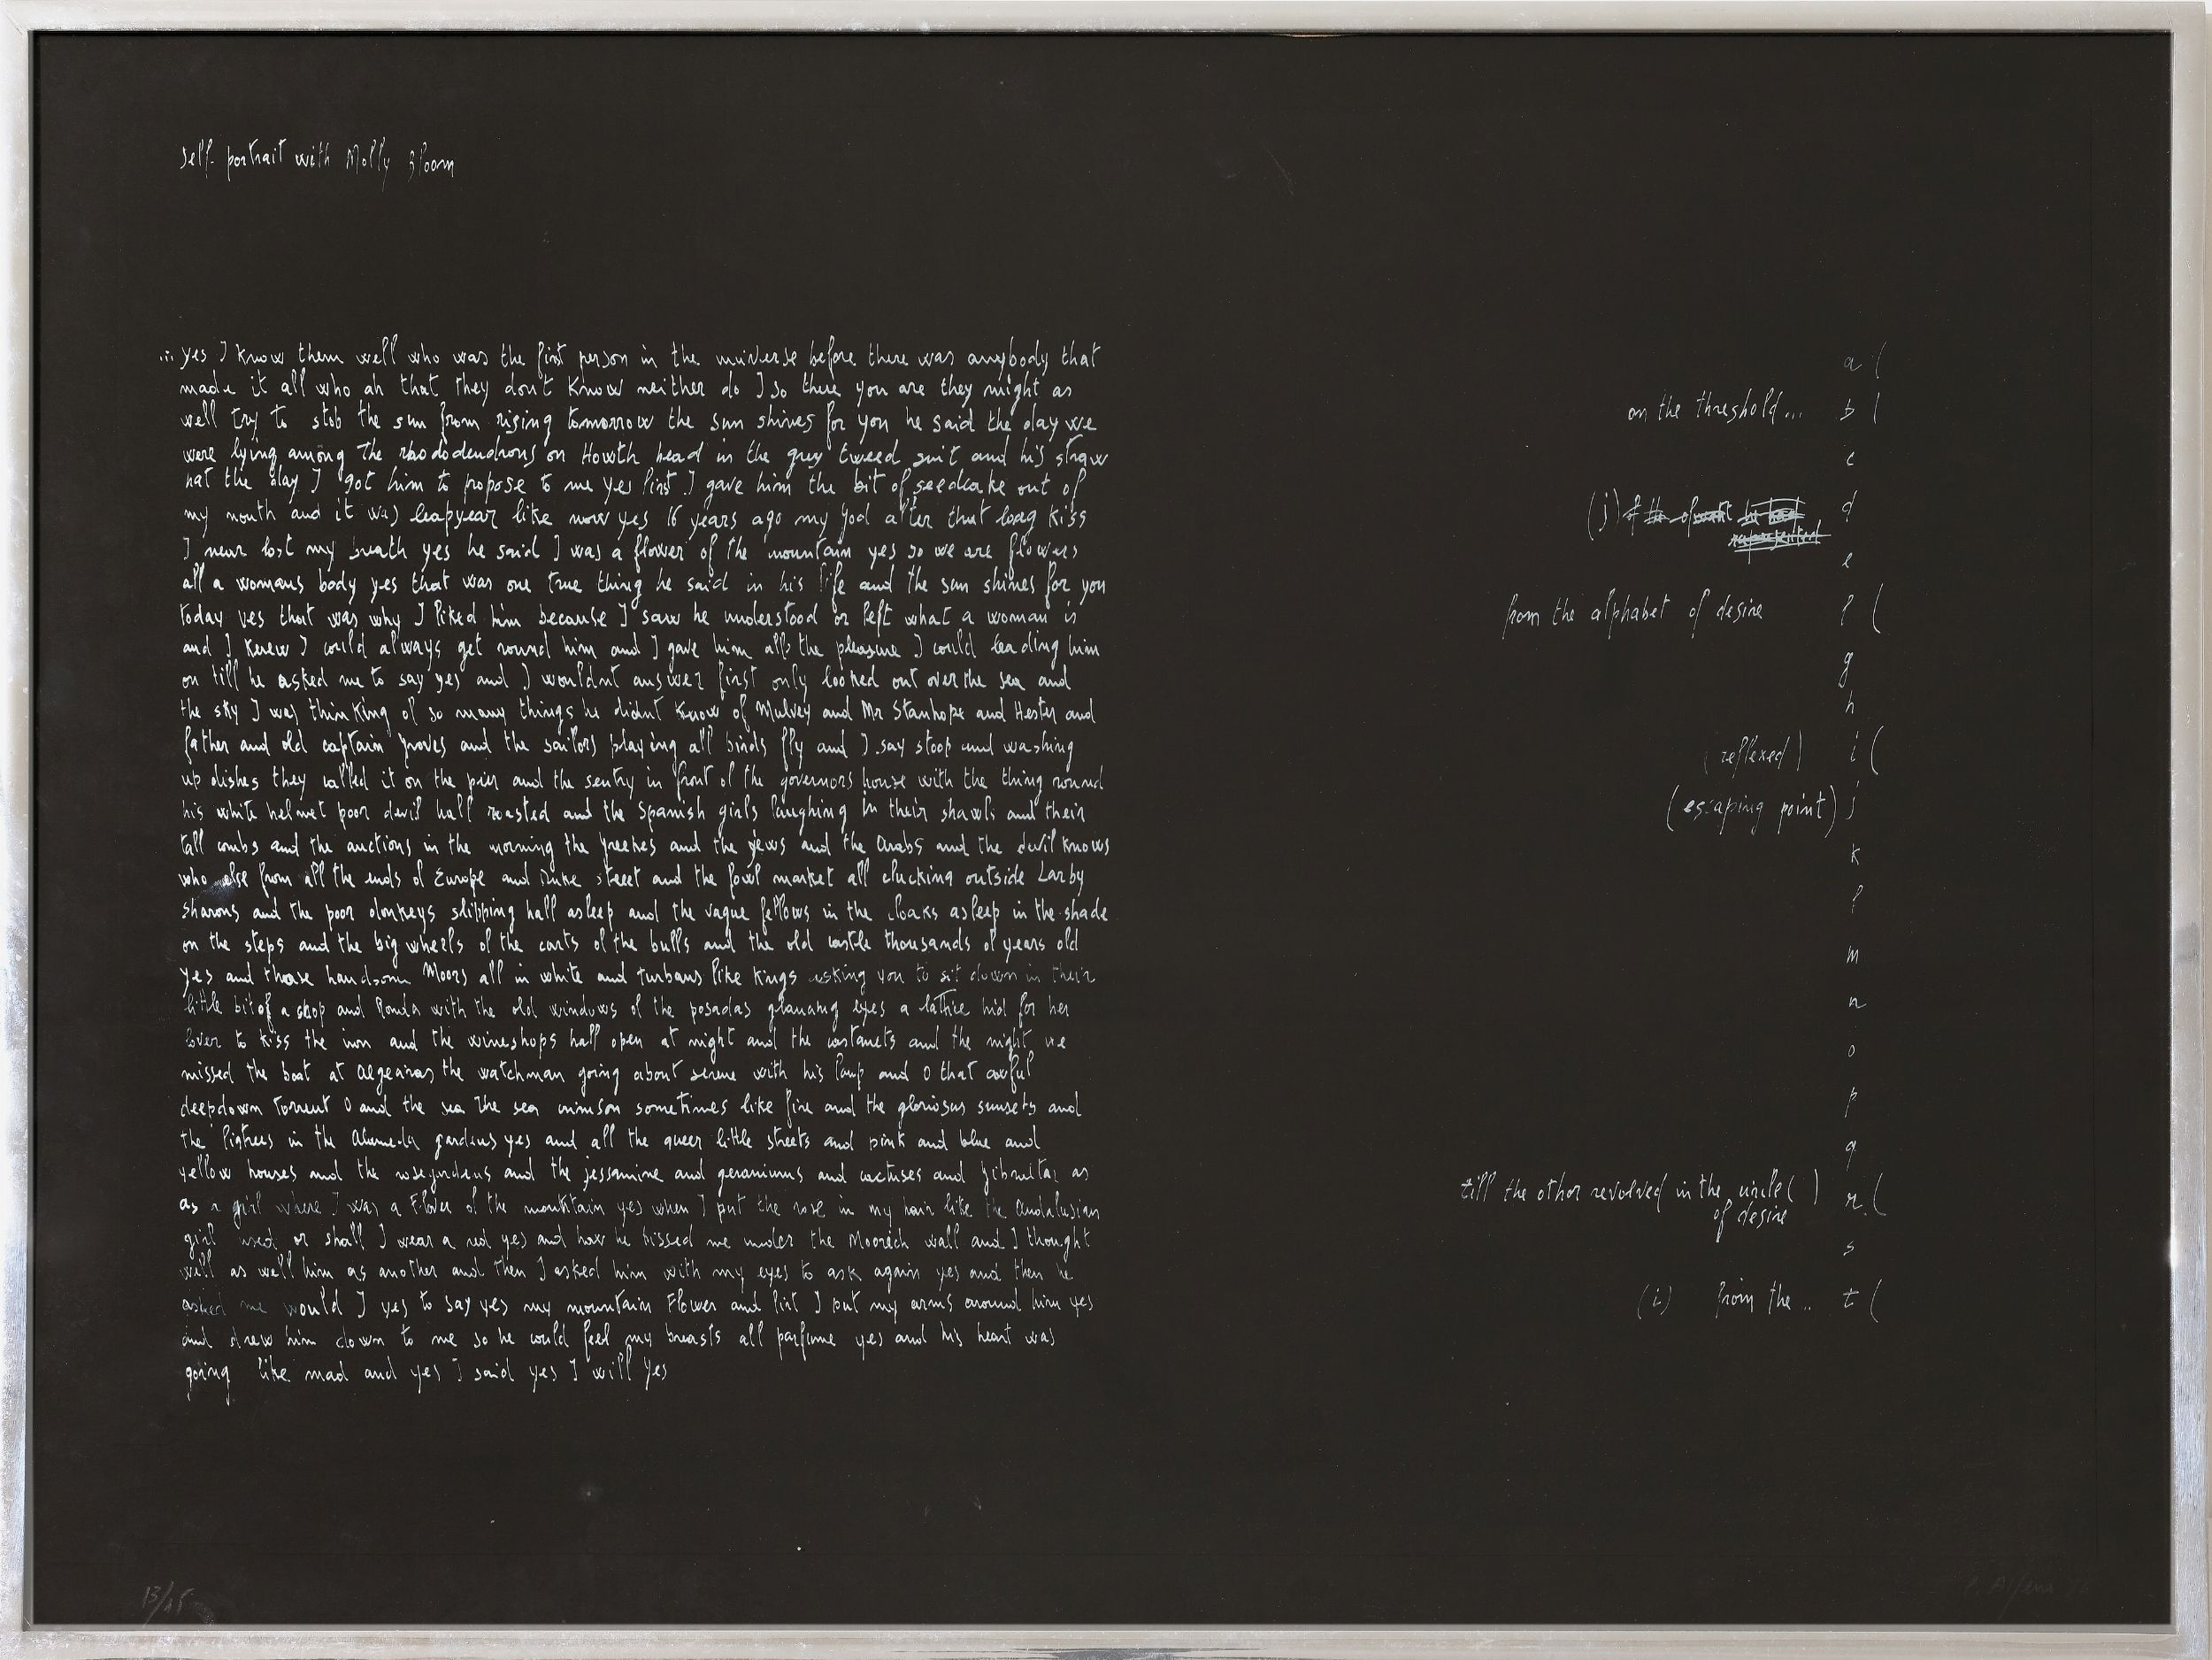 self-portrait with Molly Bloom
... yes I know them well who was the first person in the universe before there was anybody that
made it all who ah that they dont know neither do I so there you are they might as
well try to stob the sun from rising tomorrow the sun shines for you he said the day we
were lying among the rhododendrons on Howth head in the grey tweed suit and his straw
hat the day I got him to propose to me yes first I gave him the bit of seedcake out of
my mouth and it was leapyear like now yes 16 years ago my god after that long kiss
I near lost my breath yes he said I was a flower of the mountain yes so we are flowers
all a womans body yes that was one true thing he said in his life and the sun shines for you
today yes that was why I liked him because I saw he understood or felt what a woman is
and I knew I could always get round him and I gave him all the pleasure I could leading him
on till he asked me to say yes and I wouldnt answer first only looked out over the sea and
the sky I was thinking of so many things he didnt know of Mulvey and Mr Stanhope and Hester and
father and old captain groves and the sailors playing all birds fly and I say stoop and washing
up dishes they called it on the pier and the sentry in front of the governors house with the thing round
his white helmet poor devil half roasted and the spanish girls laughing in their shawls and their
tall combs and the auctions in the morning the greekes and the jews and the arabs and the devil knows
who else from all the ends of Europe and Duke street and the fowl market all clucking outside Larby
sharons and the poor donkeys slipping half asleep and the vague fellows in the cloaks asleep in the shade
on the steps and the big wheels of the carts of the bulls and the old castle thousands of years old
yes and those handsome Moors all in white and turbans like kings asking you to sit down in their
little bit of a shop and Ronda with the old windows of the posadas glancing eyes a lattice hid for her
lover to kiss the iron and the wineshops half open at night and the castanets and the night we
missed the boat at algeciras the watchman going about serene with his lamp and O that awful
deepdown torrent O and the sea the sea crimson sometimes like fire and the glorious sunsets and
the figtrees in the alameda gardens yes and all the queer little streets and pink and blue and
yellow houses and the rosegardens and the jessamine and geraniums and cactuses and gibraltar as
as a girl where I was a Flower of the mountain yes when I put the rose in my hair like the andalusian
girl used or shall I wear a red yes and how he kissed me under the Moorech wall and I thought
well as well him as another and then I asked him with my eyes to ask again yes and then he
asked me would I yes to say yes my mountain Flower and first I put my arms around him yes
and drew him down to me so he could feel my breasts all parfume yes and his heart was
going like mad and yes I said yes I will yes
a (
on the threshold... b (
c
(j) d
e
from the alphabet of desire f (
g
h
(reflexed) i (
(escaping point) j
k
l
m
n
o
p
q
till the other revolved in the circle ( ) r. (
of desire
s
(i) from the .. t (
13/45